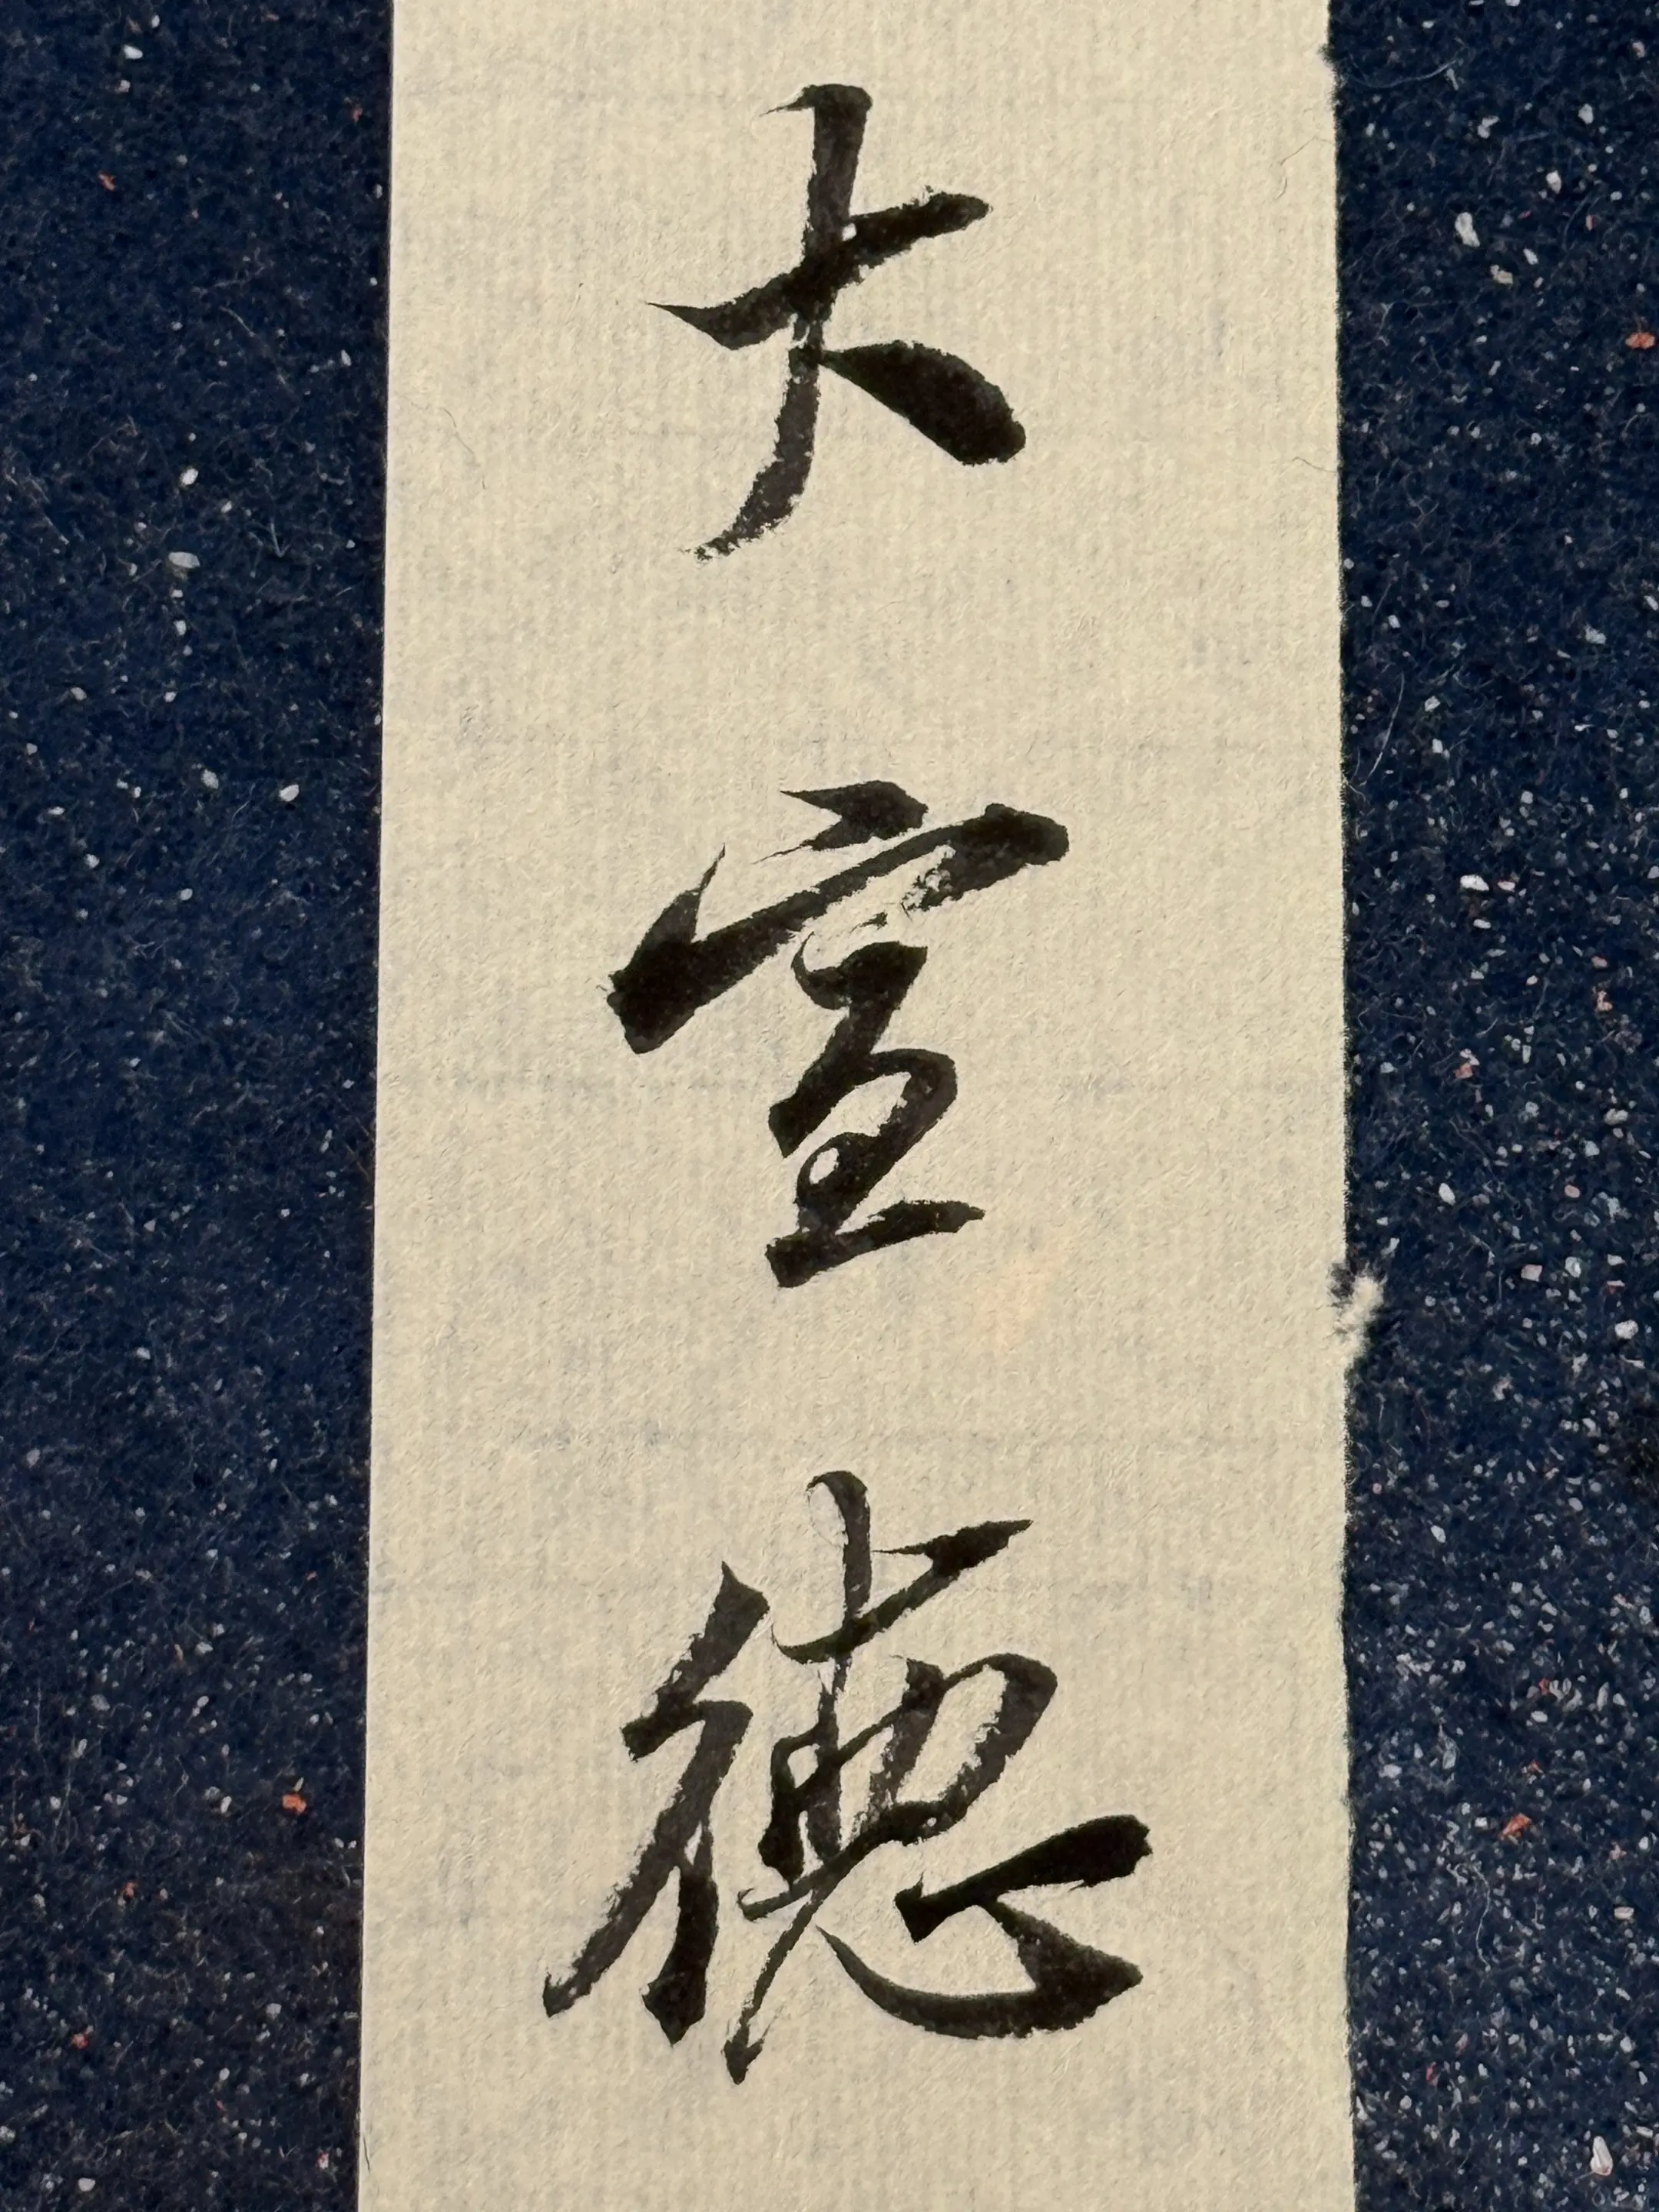 大宣德